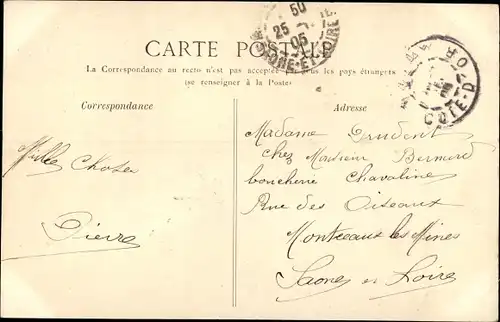 50
25
05
SAONE-ET-LOIRE
CARTE POSTALE
COTE-D'OR
La Correspondance au recto n'est pas acceptée par tous les pays étrangers
(se renseigner à la Poste)
Correspondance
Adresse
Mille Choses
Pierre
Madame Prudent
chez Monsieur Bernard
boucherie Chavaline
Rue des Oiseaux
Montceaux les Mines
Saone et Loire